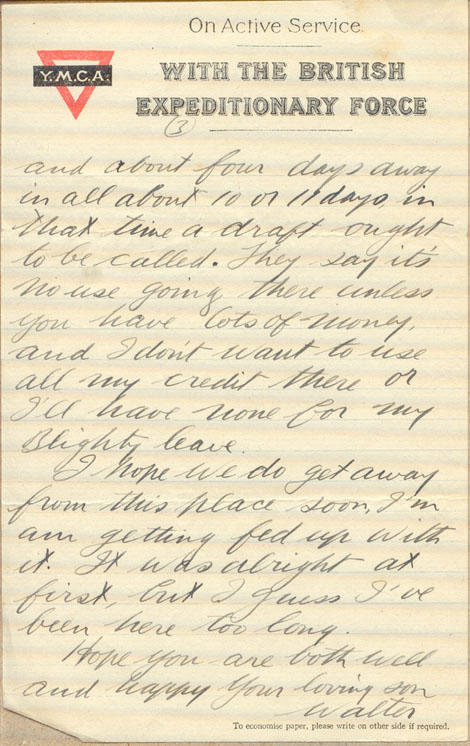 On Active Service
Y.M.C.A.
WITH THE BRITISH
EXPEDITIONARY FORCE
(3)
and about four days away
in all about 10 or 11 days, in
that time a draft ought
to be called. They say it's
no use going there unless
you have lots of money,
and I don't want to use
all my credit there or
I'll have none for my
Blighty leave.
I hope we do get away
from this place soon, I'm
am getting fed up with
it. It was alright at
first, but I guess I've
been here too long.
Hope you are both well
and happy Your loving son
Walter
To economise paper, please write on other side if required.